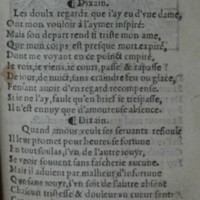 ¶Dixain.
Les doulx regards que i'ay eu d'vne dame,
Ont mon vouloir à l'aymer inspiré:
Mais son depart rend si triste mon ame,
Que mon corps est presque mort expiré,
Dont me voyant en ce poinct empiré,
Ie vois, ie viens, ie cours, passe & rapasse
De iour, de nuict, sans craindre feu ou glace,
Pensant auoir d'en regard recompense.
Si ie ne l'ay, fault qu'en brief ie trespasse,
Il n'est ennuy que d'amoureuse absence.
¶Dixain.
Quand amour veult ses seruants resiouir
Il leur promet pour heures se fortune
En tout soulas, l'vn de l'autre iouyr,
Se veoir souuent sans fascherie aucune.
Mais il aduient par malheur d'infortune
Que sans iouyr, l'vn soit de l'autre absent
Chascun tristesse & douleur en